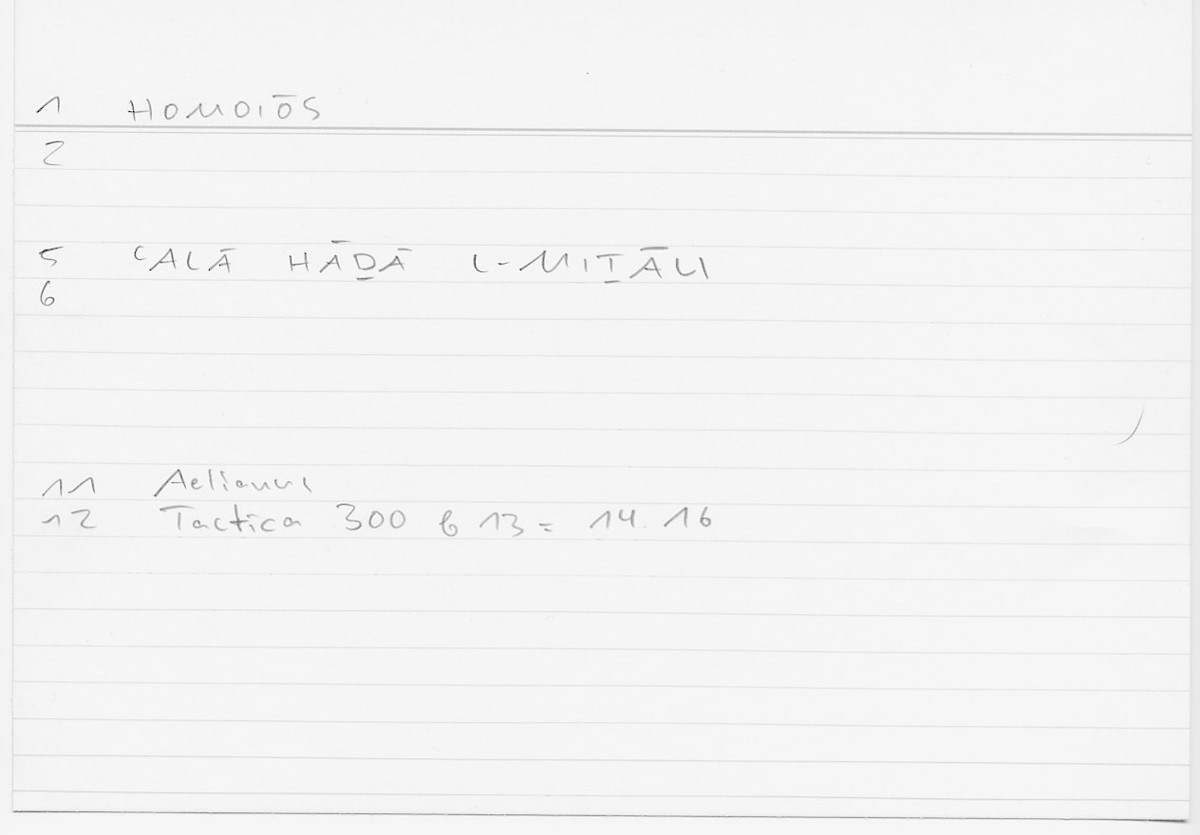 1 HOMOIŌS
2
5 ʿALĀ HĀḎĀ L-MIṮĀLI
6
11 Aelianus
12 Tactica 300 b 13 = 14.16